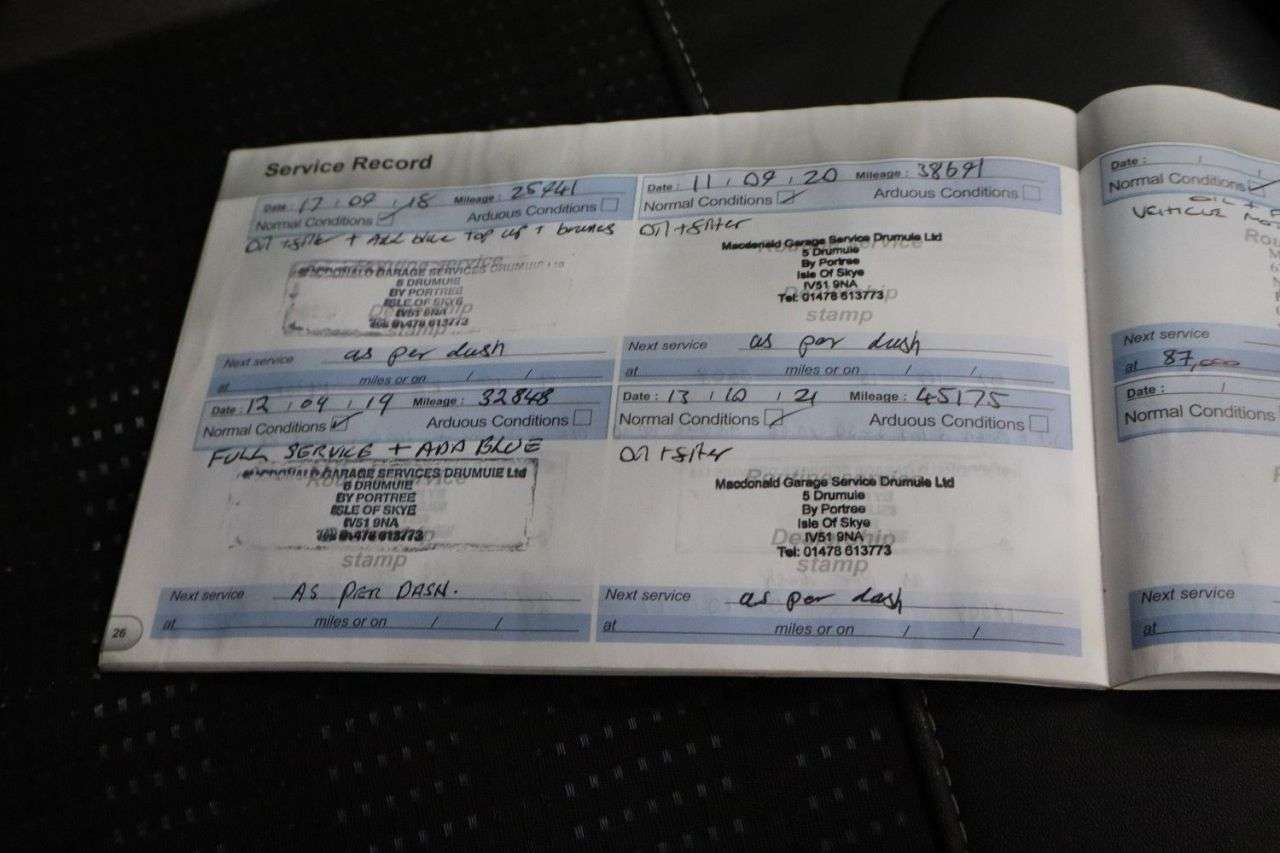 Service Record
Date : 17 , 09 , 18 Mileage : 25941
Normal Conditions Arduous Conditions
Oil + filter + Add blue top up +
MACDONALD GARAGE SERVICES DRUMUIE Ltd
5 DRUMUIE
BY PORTREE
ISLE OF SKYE
IV51 9NA
Tel: 01478 613773
stamp
Next service as per dash
at miles or on / /
Date : 12 , 09 , 19 Mileage : 32848
Normal Conditions Arduous Conditions
FULL SERVICE + ADD BLUE
MACDONALD GARAGE SERVICES DRUMUIE Ltd
5 DRUMUIE
BY PORTREE
ISLE OF SKYE
IV51 9NA
Tel: 01478 613773
stamp
Next service AS PER DASH.
at miles or on / /
26
Date : 11 , 09 , 20 Mileage : 38691
Normal Conditions Arduous Conditions
Oil + filter
Macdonald Garage Service Drumuie Ltd
5 Drumuie
By Portree
Isle Of Skye
IV51 9NA
Tel: 01478 613773
stamp
Next service as per dash
at miles or on / /
Date : 13 , 10 , 21 Mileage : 45175
Normal Conditions Arduous Conditions
Oil + filter
Macdonald Garage Service Drumuie Ltd
5 Drumuie
By Portree
Isle Of Skye
IV51 9NA
Tel: 01478 613773
Dealership
stamp
Next service as per dash
at miles or on / /
Date : /
Normal Conditions
OIL +
VEHICLE
Next service
at 87,000
Date : /
Normal Conditions
Next service
at